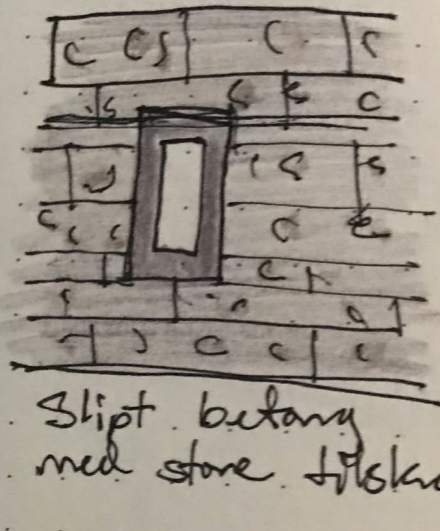 Slipt betong
med store tilsl